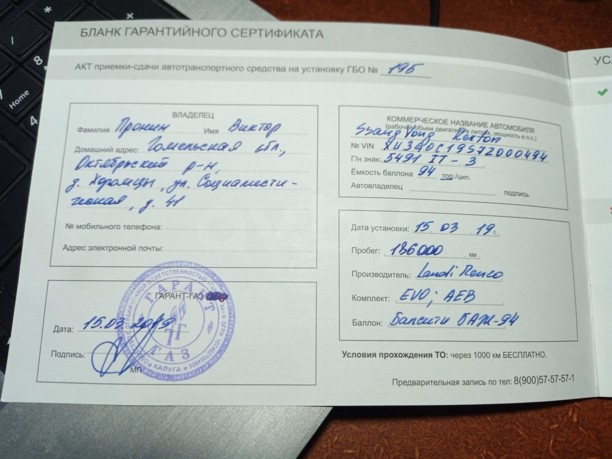 БЛАНК ГАРАНТИЙНОГО СЕРТИФИКАТА
АКТ приемки-сдачи автотранспортного средства на установку ГБО № 195
ВЛАДЕЛЕЦ
Фамилия Пронин Имя Виктор
Домашний адрес: Гомельская обл.,
Октябрьский р-н,
д. Хоромцы, ул. Социалисти-
ческая, д. 41
№ мобильного телефона:
Адрес электронной почты:
ГАРАНТ-ГАЗ
Дата: 15.03.2019
Подпись:
МП
ГАРАНТ
ГАЗ
КАЛУГА
КОММЕРЧЕСКОЕ НАЗВАНИЕ АВТОМОБИЛЯ
(рабочий объем двигателя в литрах, мощность в л.с.)
SsangYong Rexton
№ VIN XU3G0C19S72000494
Г/н знак. 5491 IT - 3
Ёмкость баллона 94 тор./цил.
Автовладелец
подпись
Дата установки: 15 03 19г.
Пробег: 186000 км
Производитель: Landi Renzo
Комплект: EVO; AEB
Баллон: 94
Условия прохождения ТО: через 1000 км БЕСПЛАТНО.
Предварительная запись по тел: 8(900)57-57-57-1
УС